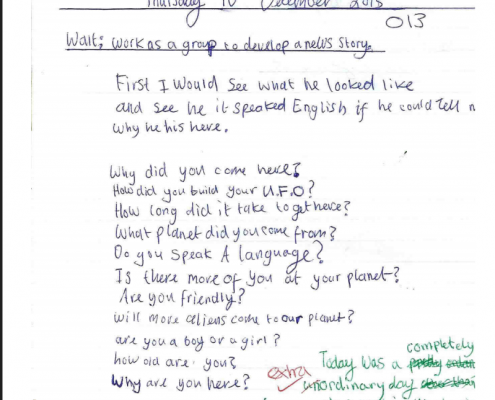 Thursday 10 December 2015
013
Walt; work as a group to develop a news story.
First I would see what he looked like
and see he it speaked English if he could tell
why he his here.
Why did you come here?
How did you build your U.F.O?
How long did it take to get here?
What planet did you come from?
Do you speak A language?
Is there more of you at your planet?
Are you friendly?
Will more aliens come to our planet?
are you a boy or a girl?
how old are you?
Why are you here?
completely
Today was a
extra
unordinary day